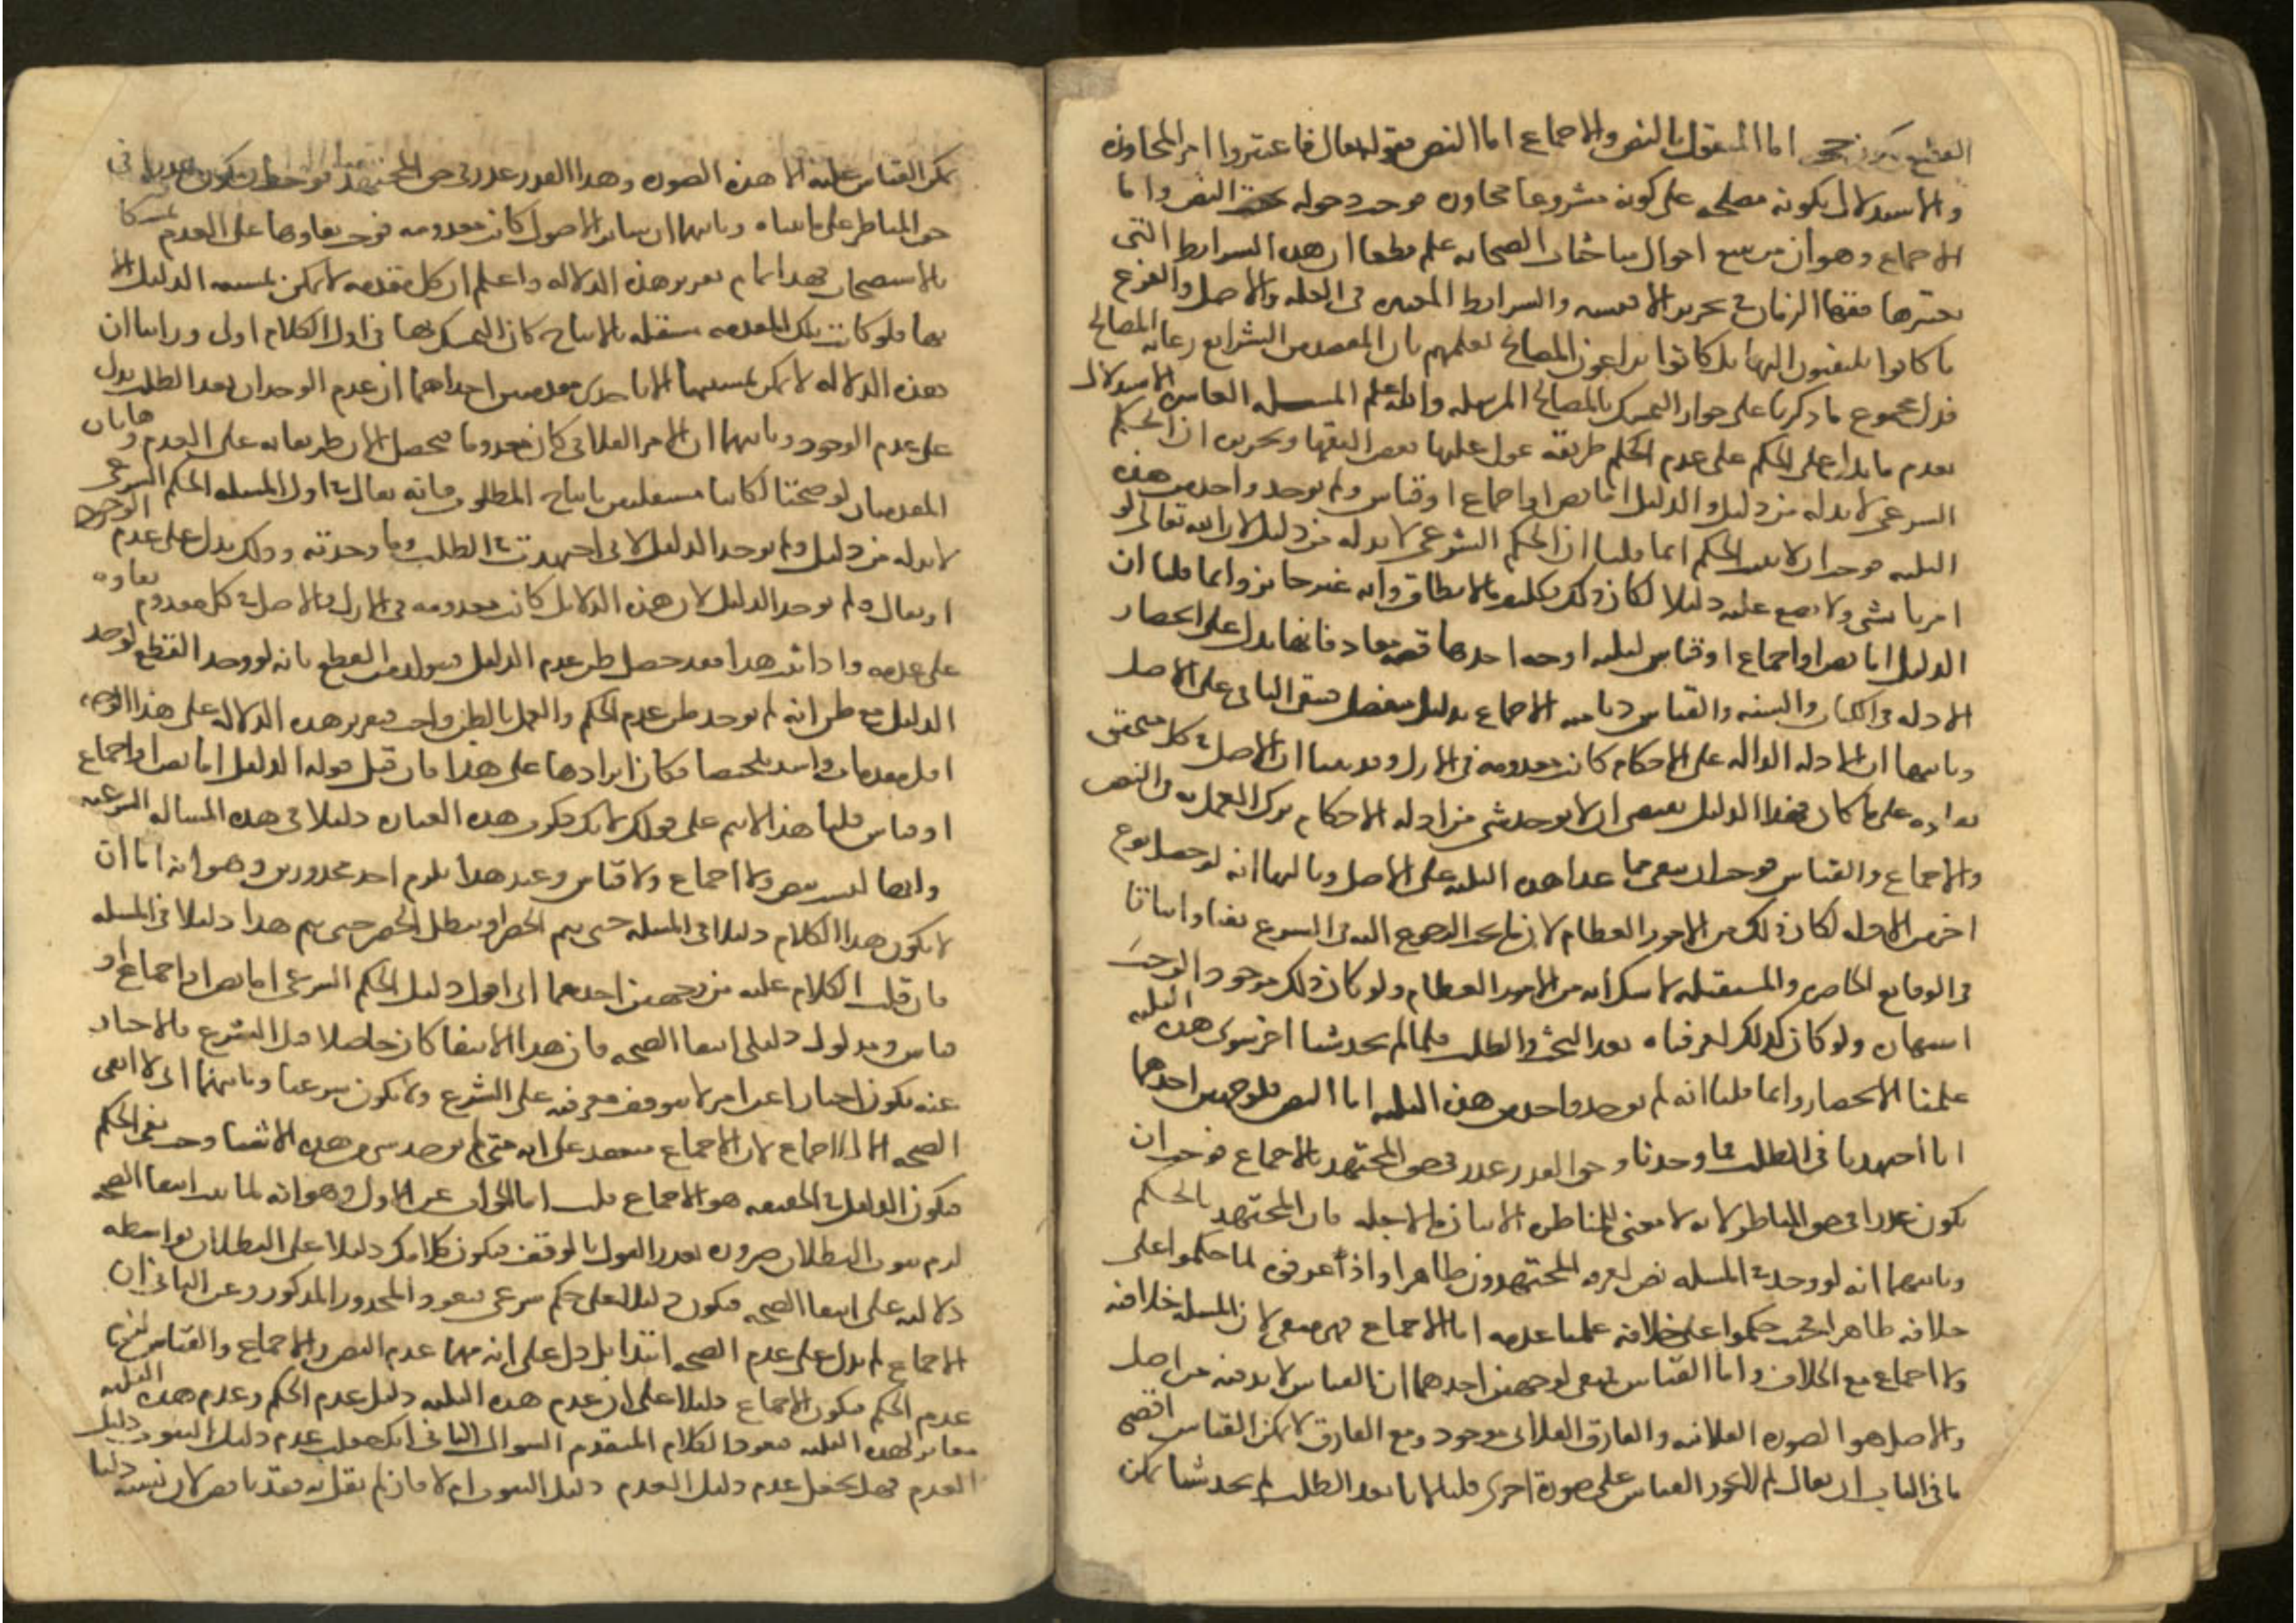 القطع بكونه اما المنقول بالنص والاجماع اما النص فقوله تعالى فاعتبروا امر بالمجاوزه
والاستدلال بكونه مصلحه على كونه مشروعا مجاوزه فوجب دخوله تحت النص واما
الاجماع وهو ان من تتبع احوال مباحثات الصحابه علم قطعا ان هذه الشرايط التى
يعتبرها فقها الزمان فى تحرير الاقيسه والشرايط المعتبره فى العله والاصل والفرع
ما كانوا يلتفتون اليها بل كانوا يراعون المصالح لعلمهم بان المقصد من الشرايع رعايه المصالح
فدل مجموع ما ذكرنا على جواز التمسك بالمصالح المرسله والله اعلم المسله العاشره الاستدلال
بعدم ما يدل على الحكم على عدم الحكم طريقه عول عليها بعض الفقها وتحريره ان الحكم
الشرعى لا بد له من دليل والدليل اما نص او اجماع او قياس ولم يوجد واحد من هذه
الثلثه فوجب ان لا يثبت الحكم انما قلنا ان الحكم الشرعى لا بد له من دليل لان الله تعالى لو
امرنا بشى ولا يضع عليه دليلا لكان ذلك تكليف ما لا يطاق وانه غير جايز وانما قلنا ان
الدليل اما نص او اجماع او قياس لثلثه اوجه احدها قصه معاذ فانها تدل على انحصار
الادله فى الكتاب والسنه والقياس زدنا فيه الاجماع بدليل منفصل فيبقى الباقى على الاصل
وثانيها ان الادله الداله على الاحكام كانت معدومه فى الازل وقد بينا ان الاصل فى كل متحقق
بقاوه على ما كان فهذا الدليل يقتضى ان لا يوجد شى من ادله الاحكام ترك العمل به فى النص
والاجماع والقياس فوجب ان يبقى فيما عدا هذه الثلثه على الاصل وثالثها انه لو حصل نوع
اخر من الادله لكان ذلك من الامور العظام لان ما يجب الرجوع اليه فى الشرع نفيا واثباتا
فى الوقايع الحاضره والمستقبله لا شك انه من الامور العظام ولو كان ذلك موجودا لوجب
اشتهاره ولو كان كذلك لعرفناه بعد البحث والطلب فلما لم نجد شيا اخر سوى هذه الثلثه
علمنا الانحصار وانما قلنا انه لم يوجد واحد من هذه الثلثه اما النص فلوجهين احدهما
انا اجتهدنا فى الطلب فما وجدنا وهذا القدر عذر فى حق المجتهد بالاجماع فوجب ان
يكون عذرا فى حق المناظر لانه لا معنى للمناظره الا بيان ما لاجله قال المجتهد بالحكم
وثانيهما انه لو وجد فى المسله نص لعرفه المجتهدون ظاهرا ولو عرفوه لما حكموا على
خلافه ظاهرا فحيث حكموا على خلافه علمنا عدمه اما الاجماع فهو منفى لان المسله خلافيه
ولا اجماع مع الخلاف واما القياس فمنفى لوجهين احدهما ان القياس لا بد فيه من اصل
والاصل هو الصوره الفلانيه والفارق الفلانى موجود ومع الفارق لا يمكن القياس اقصى
ما فى الباب ان يقال لم لا يجوز القياس على صورة اخرى قلنا لانا بعد الطلب لم نجد شيا يمكن
يمكن القياس عليه الا هذه الصوره وهذا القدر عذر فى حق المجتهد فوجب ان يكون عذرا فى
حق المناظر على ما بيناه وثانيهما ان ساير الاصول كانت معدومه فوجب بقاوها على العدم تمسكا
بالاستصحاب فهذا تمام تقرير هذه الدلاله واعلم ان كل مقدمه لا يمكن تمشيه الدليل الا
بها فلو كانت تلك المقدمه مستقله بالانتاج كان التمسك بها فى اول الكلام اولى وراينا ان
هذه الدلاله لا يمكن تمشيتها الا باحدى مقدمتين احداهما ان عدم الوجدان بعد الطلب يدل
على عدم الوجود وثانيهما ان الامر الفلانى كان معدوما فيحصل الان ظن بقايه على العدم وهاتان
المقدمتان لو صحتا لكانتا مستقلتين بانتاج المطلوب فانه يقال فى اول المسله الحكم الشرعى
لا بد له من دليل ولم يوجد الدليل لانى اجتهدت فى الطلب وما وجدته وذلك يدل على عدم الوجود
او يقال ولم يوجد الدليل لان هذه الدلايل كانت معدومه فى الازل والاصل فى كل معدوم بقاوه
على عدمه واذا ثبت هذا فقد حصل ظن عدم الدليل القطع بانه لو وجد القطع لوجد
الدليل مع ظن انه لم يوجد ظن عدم الحكم والعمل بالظن واجب فتقرير هذه الدلاله على هذا الوجه
اقل مقدمات واشد تلخيصا فكان ايرادها على هذا فان قيل قوله الدليل اما نص او اجماع
او قياس قلنا هذا لا يتم على قولك لانك تذكر هذه العباره دليلا فى هذه المساله الشرعيه
وانها ليست بنص ولا اجماع ولا قياس وعند هذا يلزم احد محذورين وهو انه اما ان
لا يكون هذا الكلام دليلا فى المسله حتى يتم الحصر او يبطل الحصر حتى يتم هذا دليلا فى المسله
فان قلت الكلام عليه من وجهين احدهما انى اقول دليل الحكم الشرعى اما نص او اجماع او
قياس ومدلول دليلى انتفا الصحه فان هذا الانتفا كان حاصلا قبل الشرع فالاخبار
عنه يكون اخبارا عن امر لا يتوقف معرفته على الشرع ولا يكون شرعيا وثانيهما انى لا انفى
الصحه الا بالاجماع لان الاجماع منعقد على انه متى لم يوجد شى من هذه الاشيا وجب نفى الحكم
فيكون الدليل فى الحقيقه هو الاجماع قلت اما الجواب عن الاول وهو انه لما ثبت انتفا الصحه
لزم ثبوت البطلان ضروره تعذر القول بالوقف فيكون كلامك دليلا على البطلان بواسطه
دلالته على انتفا الصحه فيكون دليلا على حكم شرعى فيعود المحذور المذكور وعن الثانى ان
الاجماع لم يدل على عدم الصحه ابتدا بل دل على انه مهما عدم النص والاجماع والقياس لزم
عدم الحكم فيكون الاجماع دليلا على ان عدم هذه الثلثه دليل عدم الحكم وعدم هذه الثلثه
مغاير لهذه الثلثه فيعود الكلام المتقدم السوال الثانى انك جعلت عدم دليل الثبوت دليل
العدم فهل تجعل عدم دليل العدم دليل الثبوت ام لا فان لم تقل به فقد ناقض لان نسبه دليل